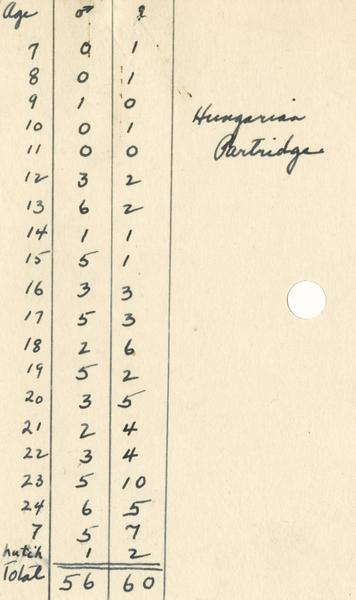 Age ♂ ♀
7 0 1
8 0 1
9 1 0
Hungarian
10 0 1
Partridge
11 0 0
12 3 2
13 6 2
14 1 1
15 5 1
16 3 3
17 5 3
18 2 6
19 5 2
20 3 5
21 2 4
22 3 4
23 5 10
24 6 5
7 5 7
hatch 1 2
Total 56 60